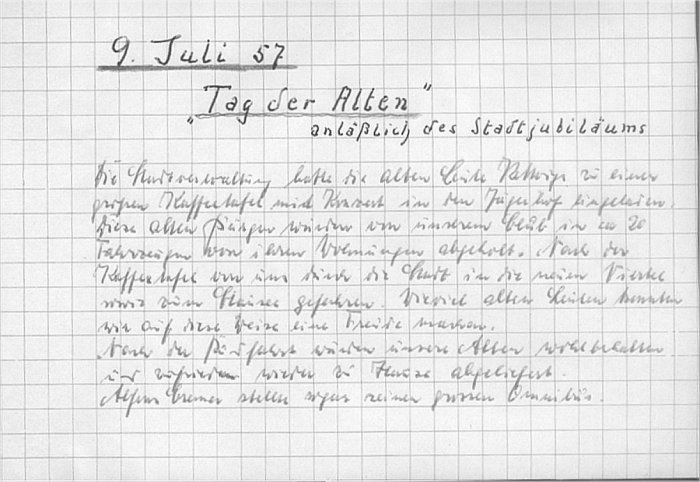 9. Juli 57
„Tag der Alten"
anläßlich des Stadtjubiläums
Die Stadtverwaltung hatte die alten Leute Kettwigs zu einer
großen Kaffeetafel mit Konzert in den Jägerhof eingeladen.
Diese alten Bürger wurden von unserem Club in ca 20
Fahrzeugen von ihren Wohnungen abgeholt. Nach der
Kaffeetafel von uns durch die Stadt in die neuen Viertel
sowie zum Stausee gefahren. Wieviel alten Leuten konnten
wir auf diese Weise eine Freude machen.
Nach der Rundfahrt wurden unsere Alten wohlbehalten
und zufrieden wieder zu Hause abgeliefert.
Alfons Cremer stellte sogar seinen grossen Omnibus.